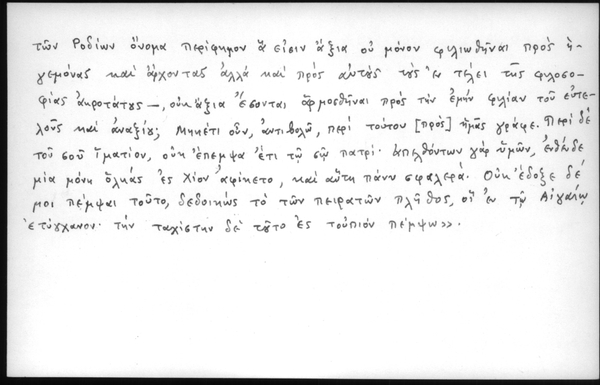 τῶν Ροδίων ὄνομα περίφημον ἃ εἰσιν ἄξια οὐ μόνον φιλιωθῆναι πρὸς ἡ-
γεμόνας καὶ ἄρχοντας ἀλλὰ καὶ πρὸς αὐτοὺς τοὺς ἐν τέλει τῆς φιλοσο-
φίας ἀκροτάτους —, οὐκ ἄξια ἔσονται ἁρμοσθῆναι πρὸς τὴν ἐμὴν φιλίαν τοῦ εὐτε-
λοῦς καὶ ἀναξίου; Μηκέτι οὖν, ἀντιβολῶ, περὶ τούτου [πρὸς] ἡμᾶς γράφε. Περὶ δὲ
τοῦ σοῦ ἱματίου, οὐκ ἔπεμψα ἔτι τῷ σῷ πατρί· ἀπελθόντων γὰρ ὑμῶν, ἐνθάδε
μία μόνη ὁλκὰς ἐς Χίον ἀφίκετο, καὶ αὕτη πάνυ σφαλερά. Οὐκ ἔδοξε δέ
μοι πέμψαι τοῦτο, δεδοικὼς τὸ τῶν πειρατῶν πλῆθος, οἳ ἐν τῷ Αἰγαίῳ
ἐτύγχανον· τὴν ταχίστην δὲ τοῦτο ἐς τοὐπιὸν πέμψω».